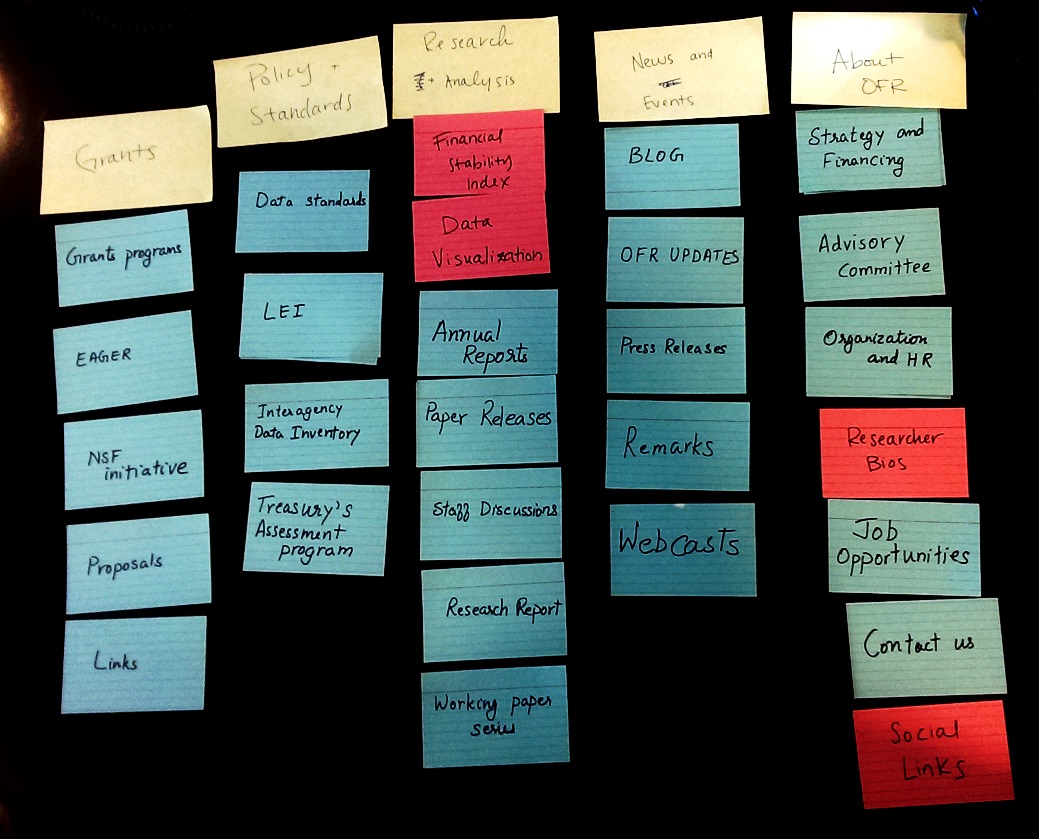 Grants
Grants programs
EAGER
NSF
initiative
Proposals
Links
Policy +
Standards
Data standards
LEI
Interagency
Data Inventory
Treasury's
Assessment
program
Research
+ Analysis
Financial
Stability
Index
Data
Visualization
Annual
Reports
Paper Releases
Staff Discussions
Research Report
Working paper
series
News and
Events
BLOG
OFR UPDATES
Press Releases
Remarks
Webcasts
About
OFR
Strategy and
Financing
Advisory
Committee
Organization
and HR
Researcher
Bios
Job
Opportunities
Contact us
Social
Links